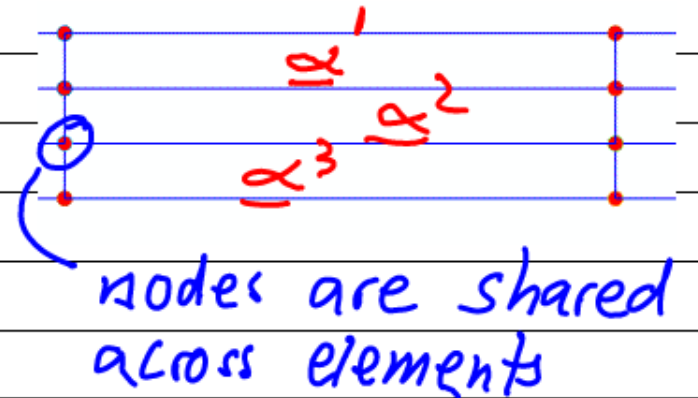 α¹
α²
α³
nodes are shared
across elements